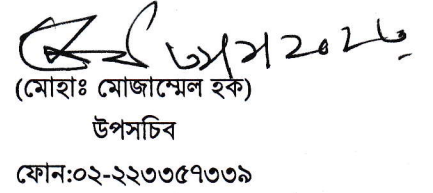 (মোহাঃ মোজাম্মেল হক)
উপসচিব
ফোন:০২-২২৩৩৫৭৩৩৯